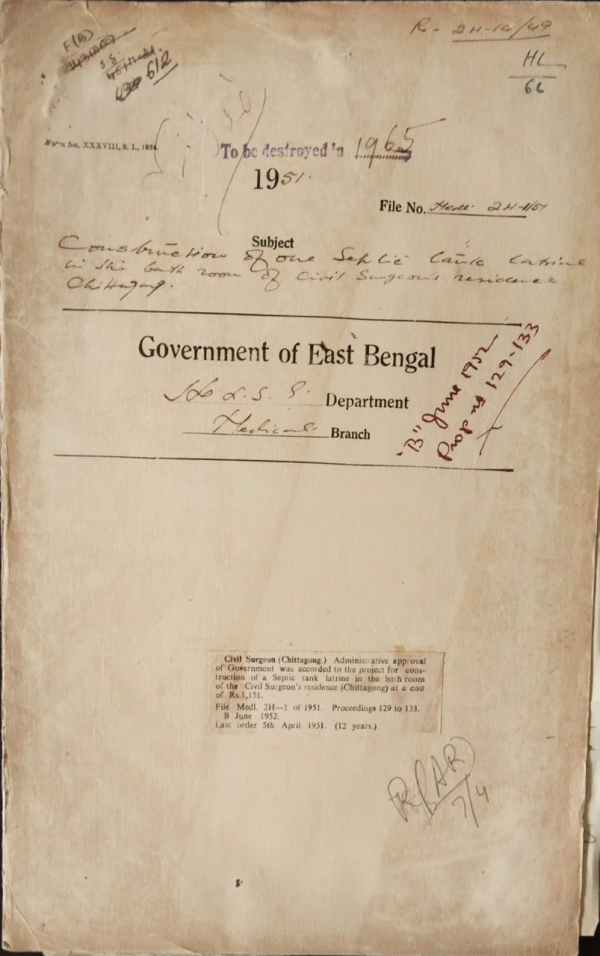 R - 2H-14/49
F(B)
S.S.
612
HL
66
Form No. XXXVIII, S. I., 1924.
To be destroyed in 1965
1951.
File No. Medl. 2H-1/51
Subject
Construction of one Septic tank latrine
in the bath room of Civil Surgeon's residence
Chittagong.
Government of East Bengal
H & L. S. G. Department
Medical Branch
"B" June 1952
Prop ns 129-133
Civil Surgeon (Chittagong.) Administrative approval
of Government was accorded to the project for cons-
truction of a Septic tank latrine in the bath room
of the Civil Surgeon's residence (Chittagong) at a cost
of Rs.1,151.
File Medl. 2H—1 of 1951. Proceedings 129 to 133.
B June 1952.
Last order 5th April 1951. (12 years.)
R(AR)
7/4